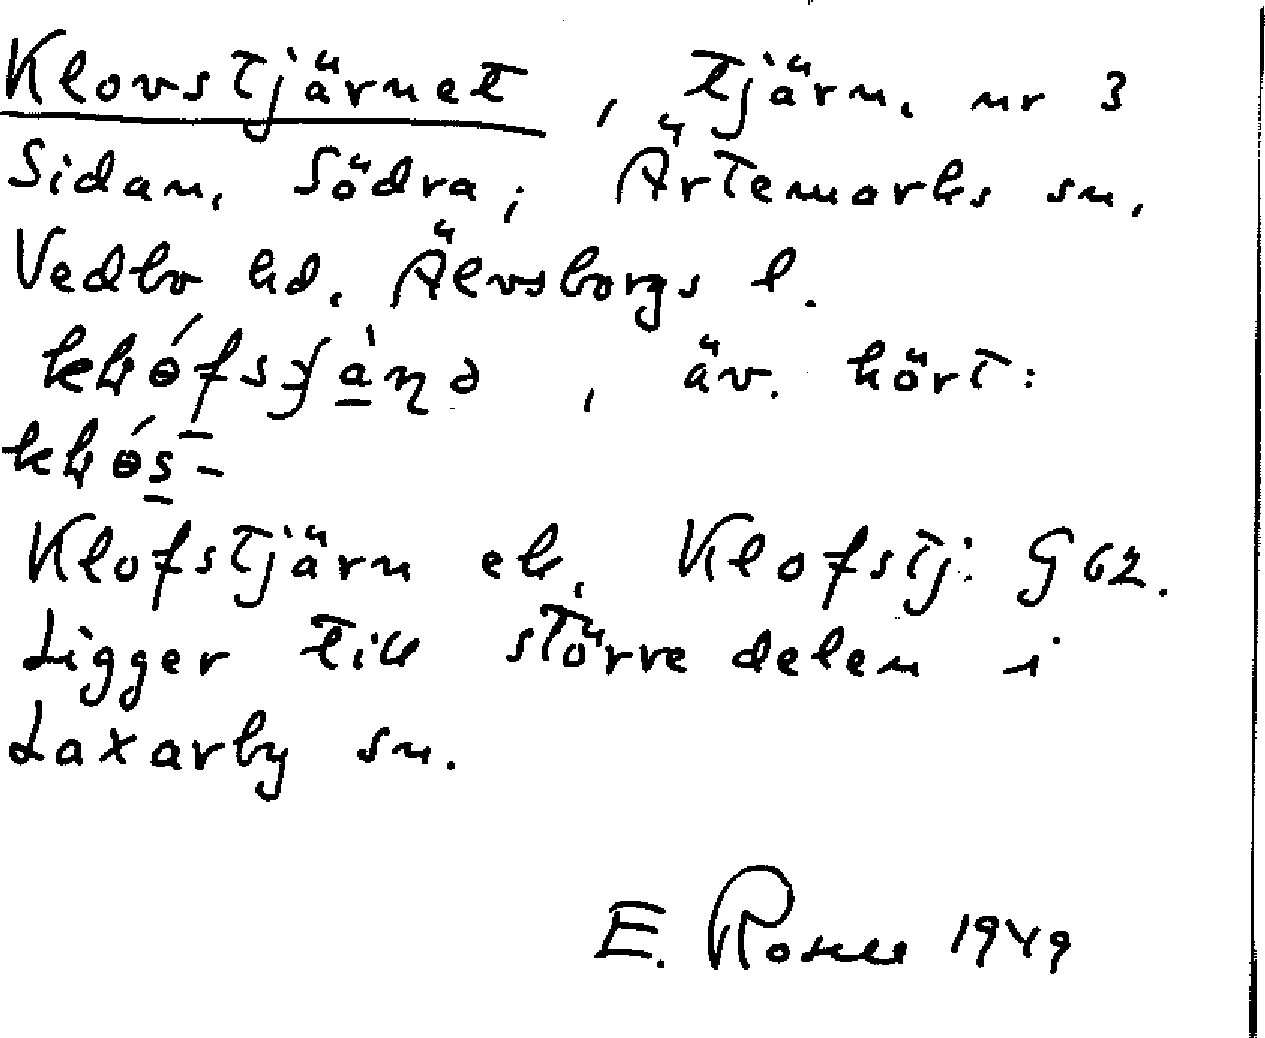 Klovstjärnet, tjärn, nr 3
Sidan, Södra; Ärtemarks sn,
Vedbo hd, Älvsborgs l.
, äv. hört:
Klofstjärn el. Klofstj: G 62.
Ligger till större delen i
Laxarby sn.
E. Rosell 1949